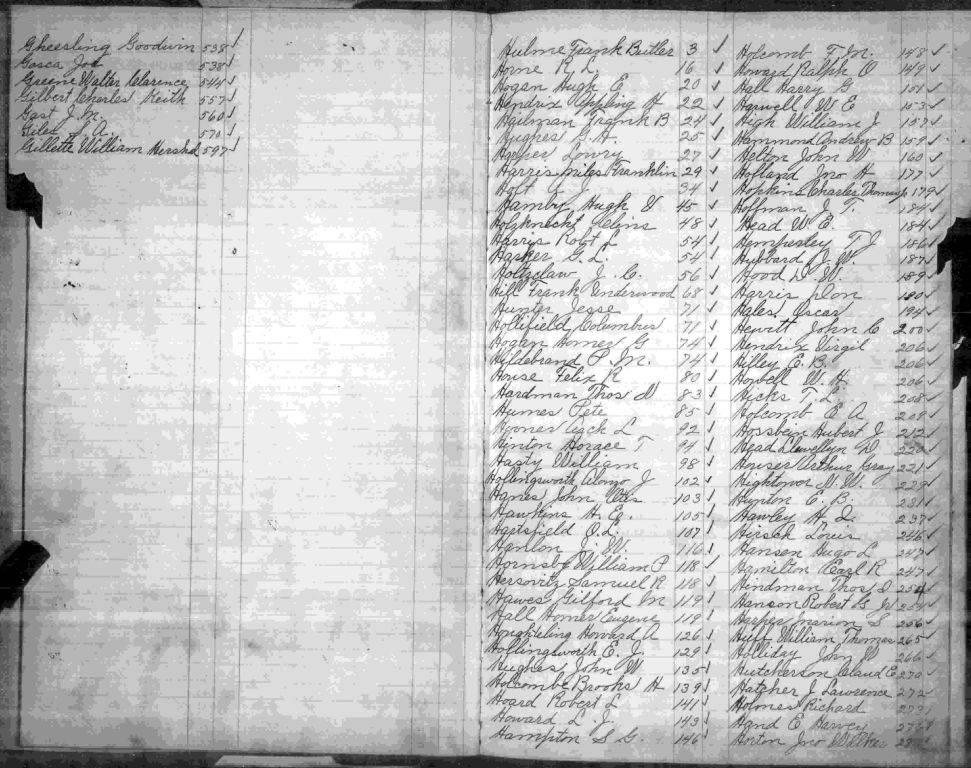 Gheesling Goodwin 538 /
Gosca Joe 538 /
Greene Walter Clarence 544 /
Gilbert Charles Keith 557 /
Gast J. M. 560 /
Giles A. 570 /
Gillette William Hershel 597 /
Hulme Frank Butler 3 ✓
Horne R L 16 ✓
Hogan Hugh E 20 ✓
Hendrix Appling H 22 ✓
Heilman Frank B 24 ✓
Hughes G. H. 25 ✓
Harper Lowry 27 ✓
Harris Miles Franklin 29 ✓
Holt 34 ✓
Hamby Hugh V 45 ✓
Holzknecht 48 ✓
Harris Robt L 54 ✓
Harker G. L. 54 ✓
Holtzclaw J. C. 56 ✓
Hill Frank Underwood 68 ✓
Hunter Jesse 71 ✓
Hollifield Columbus 71 ✓
Hogan Homer G 74 ✓
Hildebrand P. M. 74 ✓
House Felix R 80 ✓
Hardman Thos M 83 ✓
Humes Pete 85 ✓
Hooner L 92 ✓
Hinton Horace T 94 ✓
Hasty William 98 ✓
Hollingsworth Alonzo J 102 ✓
Hanes John 103 ✓
Hawkins H. E. 105 ✓
Hartsfield O. L. 107 ✓
Henlon J. W. 116 ✓
Hornsby William P 118 ✓
Hersovitz Samuel R 118 ✓
Hawes Gilford M 119 ✓
Hall Homer Eugene 119 ✓
Houghteling Howard A 126 ✓
Hollingsworth E. J. 129 ✓
Hughes John W 135 ✓
Holcombe Brooks H 139 ✓
Hoard Robert L 141 ✓
Howard L. J. 143 ✓
Hampton S. G. 146 ✓
Holcomb T. M. 148 ✓
Howard Ralph O 149 ✓
Hall Harry G 151 ✓
Harwell W E 153 ✓
High William J 157 ✓
Hammond Andrew B 159 ✓
Helton John W 160 ✓
Hofland Jno H 177 ✓
Hopkins Charles Thomas 179 ✓
Hoffman J. T. 184 ✓
Head W. E. 184 ✓
Hemperley T. J 186 ✓
Hubbard J. W. 187 ✓
Hood D. W. 189 ✓
Harris Don 190 ✓
Hales Oscar 194 ✓
Hewitt John C 200 ✓
Hendrix Virgil 206 ✓
Hilley E. B. 206 ✓
Howell W. H. 206 ✓
Hicks T. L. 208 ✓
Holcomb E A 208 ✓
Hossbein Hubert J 212 ✓
Head Llewellyn D. 220 ✓
Houser Arthur Gray 221 ✓
Hightower W. W. 229 ✓
Hunton E. B. 231 ✓
Hawley H. I. 237 ✓
Hirsch Louis 246 ✓
Hansen Hugo L 247 ✓
Hamilton Earl R 247 ✓
Hindman Thos D 254 ✓
Hanson Robert G. W 254 ✓
Harper Marion S 256 ✓
Huff William Thomas 265 ✓
Holliday John W 266 ✓
Hutcherson Claud E 270 ✓
Hatcher J Lawrence 272 ✓
Holmes Richard 273 ✓
Hand E Harvey 276 ✓
Horton Jno Walker